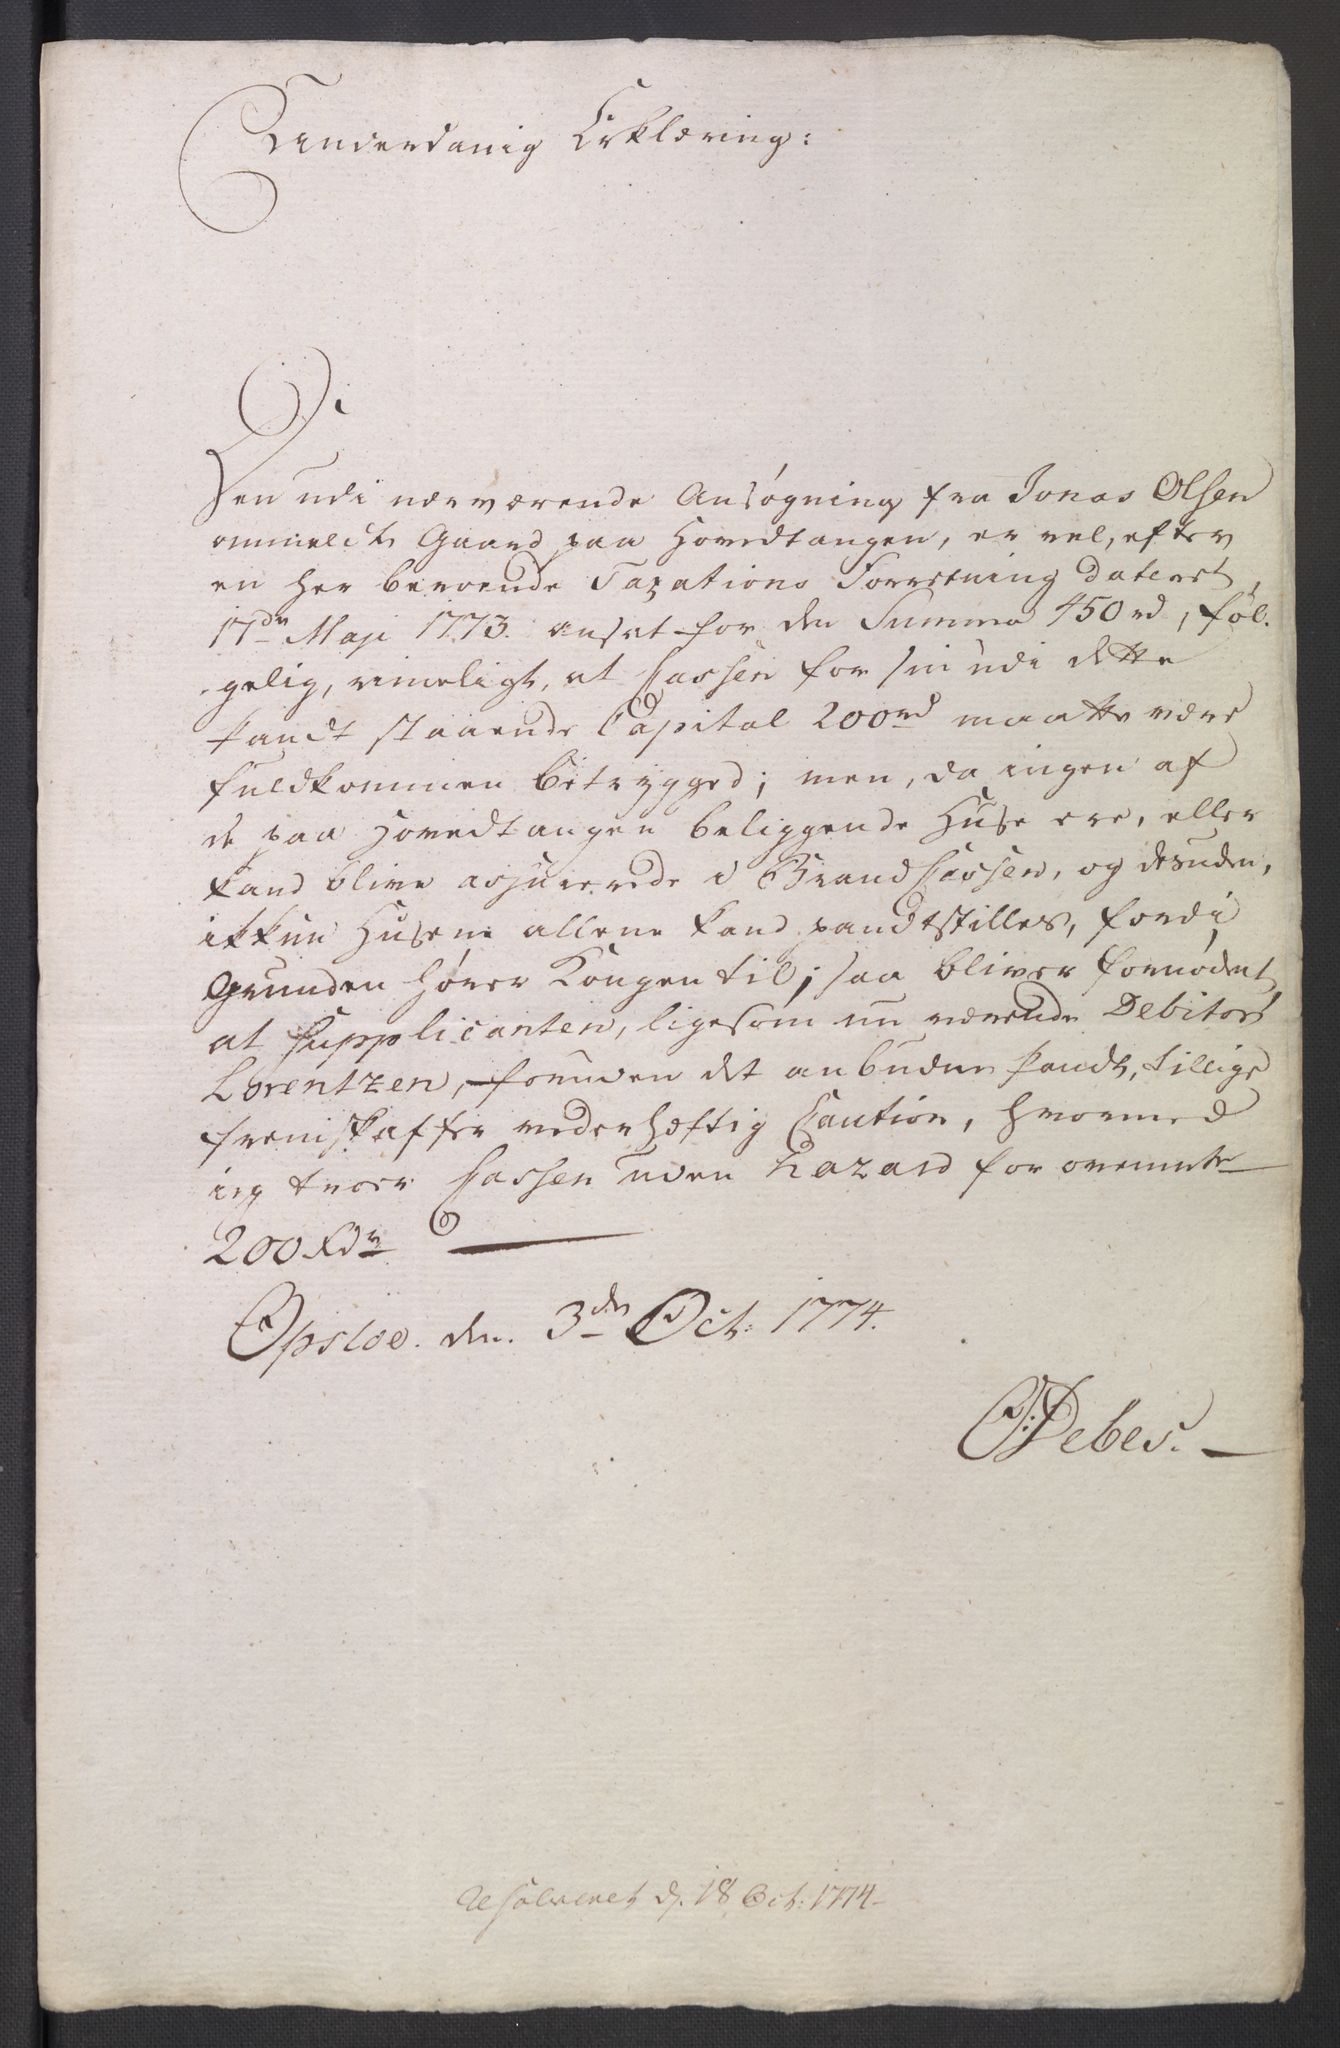 Underdanig Erklæring:
Den udi nærværende Ansøgning fra Jonas Olsen
ommeldte Gaard paa Hovedtangen, er vel, efter
en her beroende Taxations Forretning dateret,
17de Maji 1773. anset for den Summa 450 rd, føl-
gelig, rimeligt, at Cassen for sin udi dette
Pandt staaende Capital 200rd maatte være
fuldkommen betrygged; men, da ingen af
de paa Hovedtangen beliggende Huse ere, eller
kand blive assurerede i Brand Cassen, og desuden,
ikkun Husene allene kand pandtstilles, fordi
Grunden hører Kongen til; saa bliver fornødent,
at Supplicanten, ligesom nu værende Debitor
Lorentzen, foruden det anbudne Pandt, tillige
fremskaffer vederhæftig Caution, hvormed
ieg troer Cassen uden Hazard for ovennte
200 Rdr
Opsloe. den. 3den Oct: 1774.
Debes.
Resolveret d. 18 Oct: 1774